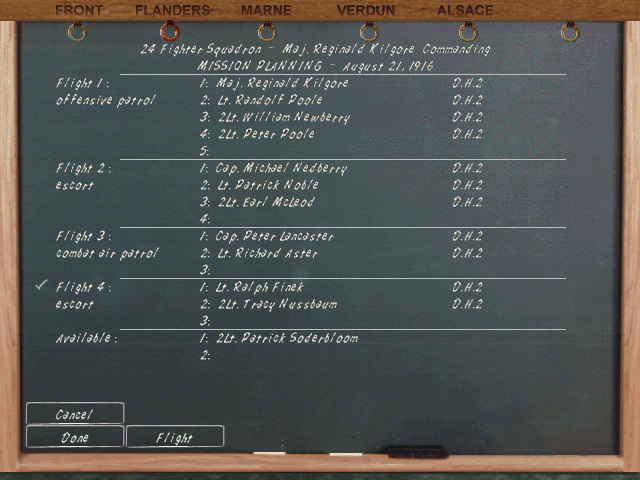 FRONT FLANDERS MARNE VERDUN ALSACE
24 Fighter Squadron - Maj. Reginald Kilgore Commanding
MISSION PLANNING - August 21, 1916
Flight 1: 1: Maj. Reginald Kilgore D.H.2
offensive patrol 2: Lt. Randolf Poole D.H.2
3: 2Lt. William Newberry D.H.2
4: 2Lt. Peter Poole D.H.2
5:
Flight 2: 1: Cap. Michael Nedberry D.H.2
escort 2: Lt. Patrick Noble D.H.2
3: 2Lt. Earl McLeod D.H.2
4:
Flight 3: 1: Cap. Peter Lancaster D.H.2
combat air patrol 2: Lt. Richard Aster D.H.2
3:
Flight 4: 1: Lt. Ralph Finek D.H.2
escort 2: 2Lt. Tracy Nussbaum D.H.2
3:
Available: 1: 2Lt. Patrick Soderbloom
2:
Cancel
Done Flight